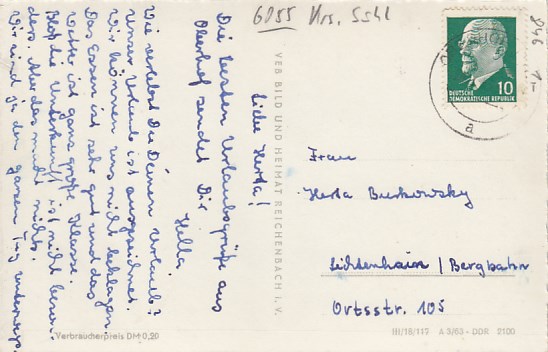 6055 Krs. 5541
846
1
Liebe Herta!
Die besten Urlaubsgrüße aus
Oberhof sendet Dir
Hella.
Wie verlebst Du Deinen Urlaub?
Unser Urlaub ist ausgezeichnet.
Wir können uns nicht beklagen.
Das Essen ist sehr gut und das
Wetter ist ganz große Klasse.
Bloß die Unterkunft ist nicht beson-
ders. Aber das macht nichts.
Wir sind ja den ganzen Tag unterwegs.
VEB BILD UND HEIMAT REICHENBACH i. V.
10
DEUTSCHE
DEMOKRATISCHE REPUBLIK
a
Frau
Herta Burkowsky
Lichtenhain / Bergbahn
Ortsstr. 105
Verbraucherpreis DM 0,20
III/18/117 A 3/63 - DDR 2100